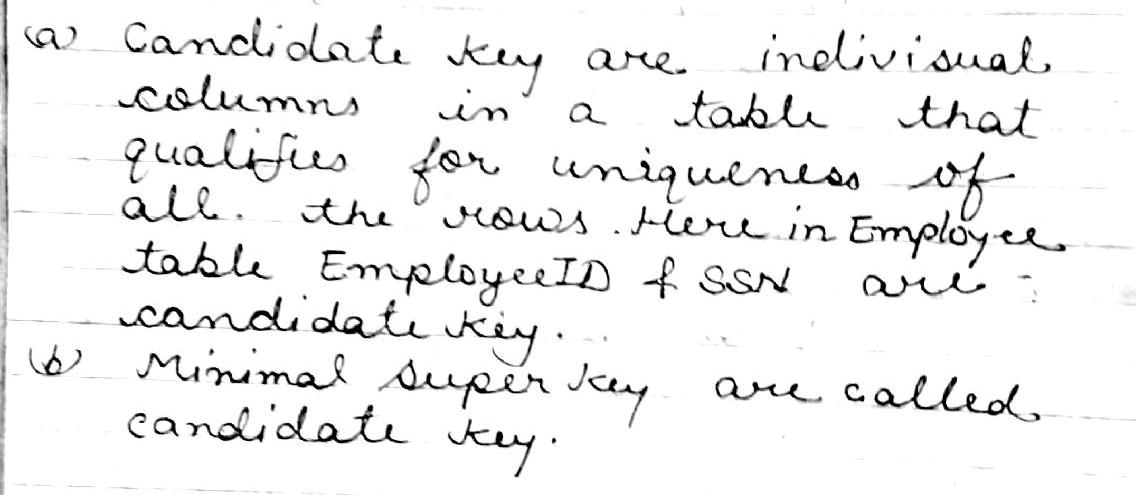 (a) Candidate key are indivisual
columns in a table that
qualifies for uniqueness of
all. the rows. Here in Employee
table EmployeeID & SSN are
candidate key.
(b) Minimal super key are called
candidate key.